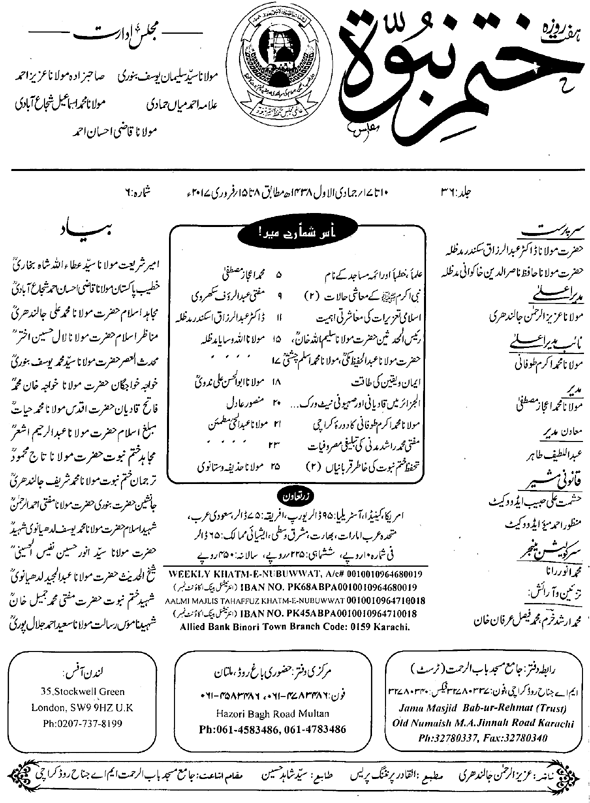 ہفت روزہ
ختم نبوۃ
مجلس ادارت
مولانا سید سلیمان یوسف بنوری صاحبزادہ مولانا عزیز احمد
علامہ احمد میاں حمادی مولانا محمد اسماعیل شجاع آبادی
مولانا قاضی احسان احمد
جلد: ۳۶
۱۰ تا ۱۷/ جمادی الاول ۱۴۳۸ھ مطابق ۸ تا ۱۵/ فروری ۲۰۱۷ء
شمارہ: ۶
سرپرست
حضرت مولانا ڈاکٹر عبدالرزاق سکندر مدظلہ
حضرت مولانا حافظ ناصر الدین خاکوانی مدظلہ
مدیر اعلیٰ
مولانا عزیز الرحمٰن جالندھری
نائب مدیر اعلیٰ
مولانا محمد اکرم طوفانی
مدیر
مولانا محمد اعجاز مصطفیٰ
معاون مدیر
عبداللطیف طاہر
قانونی مشیر
حشمت علی حبیب ایڈووکیٹ
منظور احمد میو ایڈووکیٹ
سرکولیشن منیجر
محمد انور رانا
تزئین و آرائش:
محمد ارشد خرم، محمد فیصل عرفان خان
اس شمارے میں!
علماء، خطباء اور ائمہ مساجد کے نام ۵ محمد اعجاز مصطفیٰ
نبی اکرم ﷺ کے معاشی حالات (۲) ۹ مفتی عبدالرؤف سکھروی
اسلامی تعزیرات کی معاشرتی اہمیت ۱۱ ڈاکٹر عبدالرزاق اسکندر مدظلہ
رئیس المحدثین حضرت مولانا سلیم اللہ خانؒ ۱۵ مولانا اللہ وسایا مدظلہ
حضرت مولانا عبدالحفیظ مکیؒ، مولانا محمد اسلم چشتیؒ ۱۷ " " " "
ایمان و یقین کی طاقت ۱۸ مولانا ابوالحسن علی ندویؒ
الجزائر میں قادیانی اور صہیونی نیٹ ورک... ۲۰ منصور عادل
مولانا محمد اکرم طوفانی کا دورۂ کراچی ۲۱ مولانا عبدالحئی مطمئن
مفتی محمد راشد مدنی کی تبلیغی مصروفیات ۲۳ " " " "
تحفظ ختم نبوت کی خاطر قربانیاں (۲) ۲۵ مولانا حذیفہ وستانوی
زرتعاون
امریکا، کینیڈا، آسٹریلیا: ۹۵ ڈالر یورپ، افریقہ: ۷۵ ڈالر سعودی عرب،
متحدہ عرب امارات، بھارت، مشرق وسطی، ایشیائی ممالک: ۶۵ ڈالر
فی شمارہ ۱۰ روپے، ششماہی: ۲۲۵ روپے، سالانہ: ۴۵۰ روپے
WEEKLY KHATM-E-NUBUWWAT, A/c# 0010010964680019
IBAN NO. PK68ABPA0010010964680019 (انٹرنیشنل بینک اکاؤنٹ نمبر)
AALMI MAJLIS TAHAFFUZ KHATM-E-NUBUWWAT 0010010964710018
IBAN NO. PK45ABPA0010010964710018 (انٹرنیشنل بینک اکاؤنٹ نمبر)
Allied Bank Binori Town Branch Code: 0159 Karachi.
بیاد
امیر شریعت مولانا سید عطاء اللہ شاہ بخاریؒ
خطیب پاکستان مولانا قاضی احسان احمد شجاع آبادیؒ
مجاہد اسلام حضرت مولانا محمد علی جالندھریؒ
مناظر اسلام حضرت مولانا لال حسین اخترؒ
محدث العصر حضرت مولانا سید محمد یوسف بنوریؒ
خواجہ خواجگان حضرت مولانا خواجہ خان محمدؒ
فاتح قادیان حضرت اقدس مولانا محمد حیاتؒ
مبلغ اسلام حضرت مولانا عبدالرحیم اشعرؒ
مجاہد ختم نبوت حضرت مولانا تاج محمودؒ
ترجمان ختم نبوت حضرت مولانا محمد شریف جالندھریؒ
جانشین حضرت بنوری حضرت مولانا مفتی احمد الرحمٰنؒ
شہید اسلام حضرت مولانا محمد یوسف لدھیانوی شہیدؒ
حضرت مولانا سید انور حسین نفیس الحسینیؒ
شیخ الحدیث حضرت مولانا عبدالمجید لدھیانویؒ
شہید ختم نبوت حضرت مفتی محمد جمیل خانؒ
شہید ناموس رسالت مولانا سعید احمد جلال پوریؒ
رابطہ دفتر: جامع مسجد باب الرحمت (ٹرسٹ)
ایم اے جناح روڈ کراچی، فون: ۳۲۷۸۰۳۳۷ فیکس: ۳۲۷۸۰۳۴۰
Jama Masjid Bab-ur-Rehmat (Trust)
Old Numaish M.A.Jinnah Road Karachi
Ph:32780337, Fax:32780340
مرکزی دفتر: حضوری باغ روڈ، ملتان
فون: ۰۶۱-۴۷۸۳۴۸۶، ۰۶۱-۴۵۸۳۴۸۶
Hazori Bagh Road Multan
Ph:061-4583486, 061-4783486
لندن آفس:
35,Stockwell Green
London, SW9 9HZ U.K
Ph:0207-737-8199
ناشر: عزیز الرحمٰن جالندھری مطبع: القادر پرنٹنگ پریس طابع: سید شاہد حسین مقام اشاعت: جامع مسجد باب الرحمت ایم اے جناح روڈ کراچی